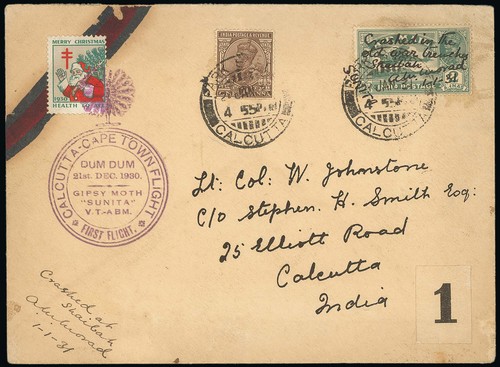 MERRY CHRISTMAS
1930
HEALTH
INDIA POSTAGE & REVENUE
Crashed in the
old over trenches
Shaibah
4
CALCUTTA
CALCUTTA
CALCUTTA-CAPE TOWN FLIGHT
DUM DUM
21st. DEC. 1930.
GIPSY MOTH
"SUNITA"
V.T-ABM.
FIRST FLIGHT.
Lt: Col: W. Johnstone
C/o Stephen. H. Smith Esq:
25 Elliott Road
Calcutta
India
Crashed at
Shaibah
1-1-31
1